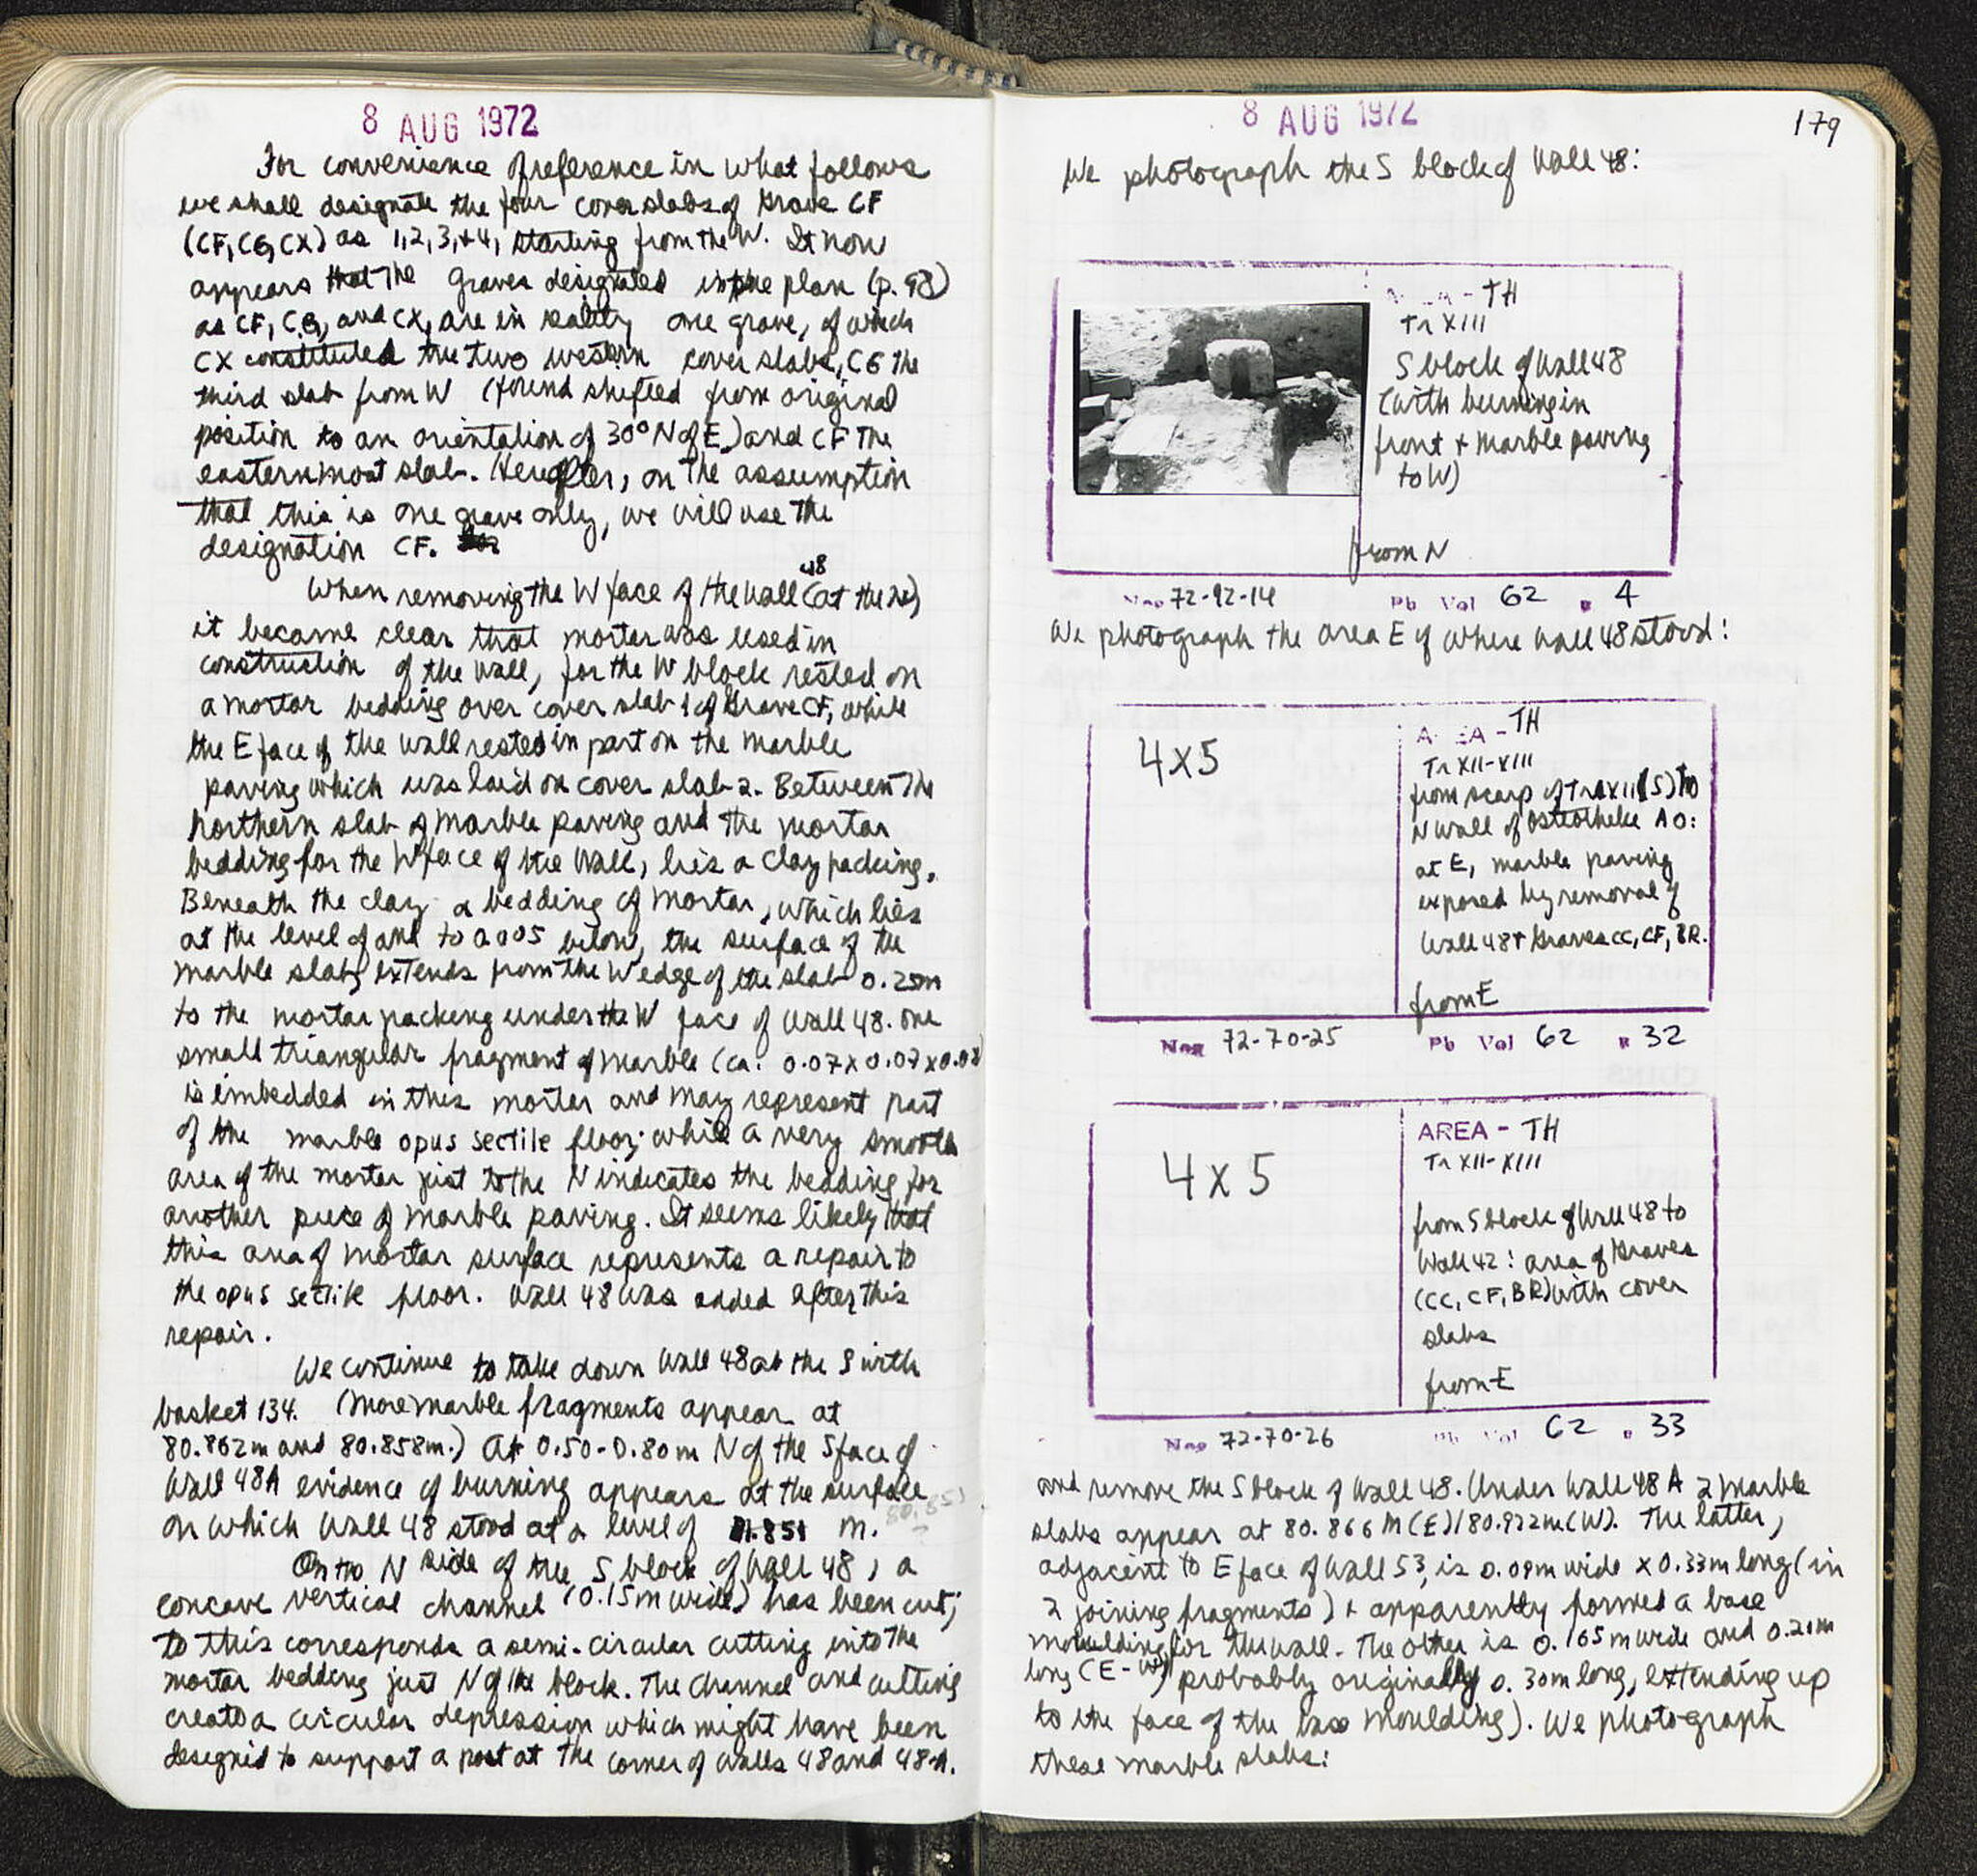 8 AUG 1972
For convenience of reference in what follows
we shall designate the four cover slabs of Grave CF
(CF, CG, CX) as 1, 2, 3, + 4, starting from the W. It now
appears the Graves designated in the plan (p. 98)
as CF, CG, and CX, are in reality one grave, of which
CX constituted the two western cover slabs, CG the
third slab from W (found shifted from original
position to an orientation of 30° N of E) and CF the
easternmost slab. Hereafter, on the assumption
that this is one grave only, we will use the
designation CF.
When removing the W face of the wall 48 (at the N)
it became clear that mortar was used in
construction of the wall, for the W block rested on
a mortar bedding over cover slab 1 of Grave CF, while
the E face of the wall rested in part on the marble
paving which was laid on cover slab 2. Between the
northern slab of marble paving and the mortar
bedding for the W face of the wall, lies a clay packing.
Beneath the clay a bedding of mortar, which lies
at the level of and to 0.005 below, the surface of the
marble slab, extends from the W edge of the slab 0.25m
to the mortar packing under the W face of Wall 48. One
small triangular fragment of marble (ca. 0.07 x 0.07 x
is embedded in this mortar and may represent part
of the marble opus sectile floor; while a very smooth
area of the mortar just to the N indicates the bedding for
another piece of marble paving. It seems likely that
this area of mortar surface represents a repair to
the opus sectile floor. Wall 48 was added after this
repair.
We continue to take down Wall 48 at the S with
basket 134. (More marble fragments appear at
80.862m and 80.858m.) At 0.50-0.80m N of the S face of
Wall 48A evidence of burning appears at the surface
on which Wall 48 stood at a level of .851 m. 80.851
On the N side of the S block of Wall 48, a
concave vertical channel (0.15m wide) has been cut;
to this corresponds a semi-circular cutting into the
mortar bedding just N of the block. The channel and cutting
create a circular depression which might have been
designed to support a post at the corner of Walls 48 and 48-A.
8 AUG 1972
179
We photograph the S block of Wall 48:
AREA - TH
Tr XIII
S block of Wall 48
(with burning in
front + marble paving
to W)
from N
Neg 72-92-14 Pb Vol 62 p 4
We photograph the area E of where Wall 48 stood:
4x5
AREA - TH
Tr XII-XIII
from scarp of Tr XII (S) to
N wall of Osteotheke AO:
at E, marble paving
exposed by removal of
Wall 48 + Graves CC, CF, BR.
from E
Neg 72-70-25 Pb Vol 62 p 32
4x5
AREA - TH
Tr XII-XIII
from S block of Wall 48 to
Wall 42: area of Graves
(CC, CF, BR) with cover
slabs
from E
Neg 72-70-26 Pb Vol 62 p 33
and remove the S block of Wall 48. Under Wall 48 A 2 marble
slabs appear at 80.866 m (E)/80.922m (W). The latter,
adjacent to E face of Wall 53, is 0.09m wide x 0.33m long (in
2 joining fragments) + apparently formed a base
moulding for the wall. The other is 0.165m wide and 0.20m
long (E-W) probably originally 0.30m long, extending up
to the face of the base moulding). We photograph
these marble slabs: